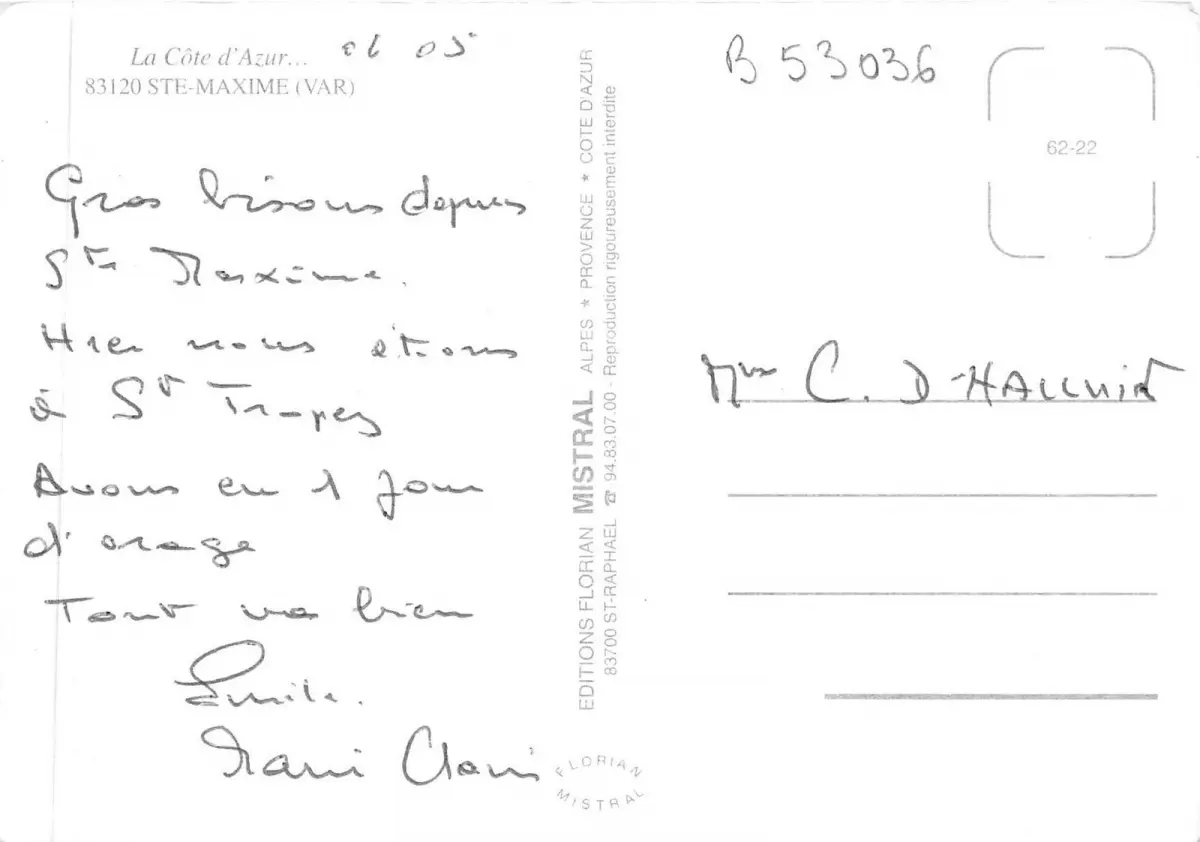 La Côte d'Azur...
83120 STE-MAXIME (VAR)
06 05
Gros bisous depuis
Ste Maxime.
Hier nous étions
à St Tropez
Avons eu 1 jour
d'orage
Tout va bien
Emile.
EDITIONS FLORIAN MISTRAL ALPES ★ PROVENCE ★ COTE D'AZUR
83700 ST-RAPHAEL ☎ 94.83.07.00 - Reproduction rigoureusement interdite
FLORIAN
MISTRAL
B 53036
62-22
Mme C. D'HALLUIN